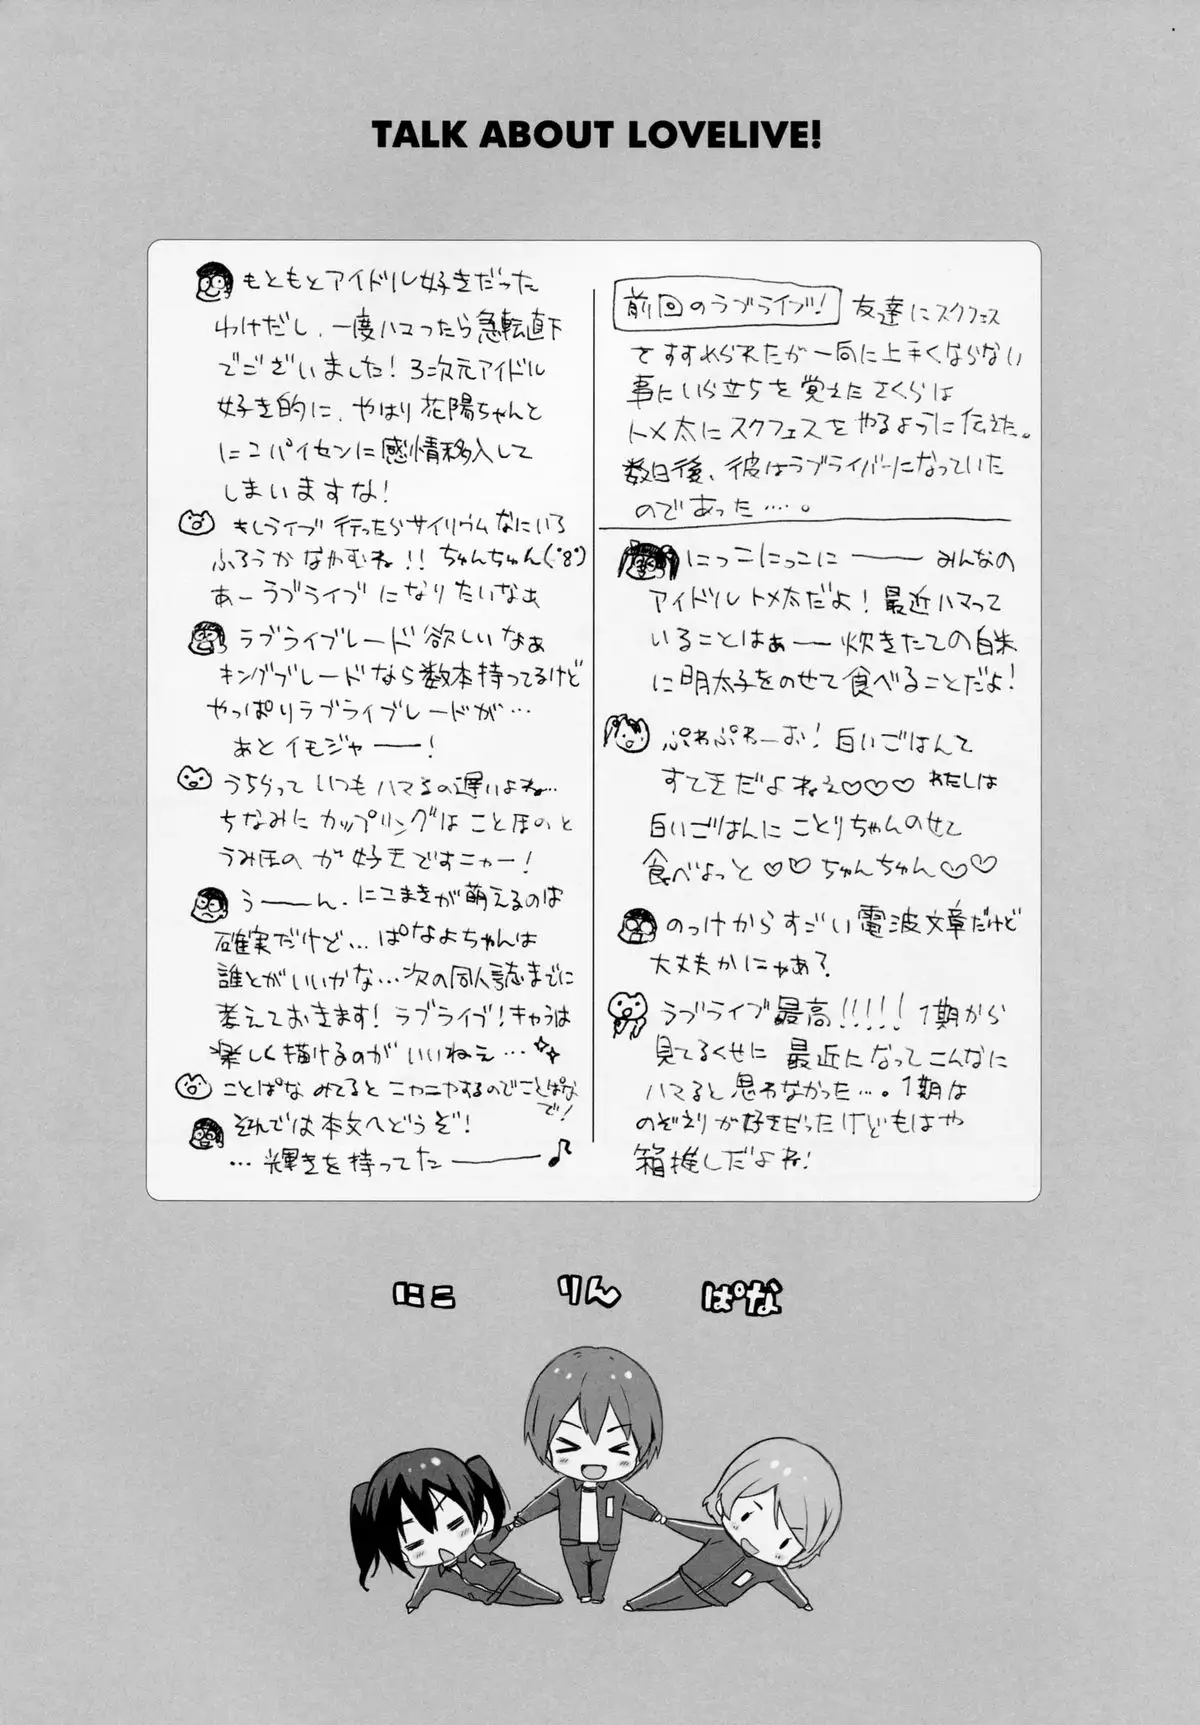 TALK ABOUT LOVELIVE!
前回のラブライブ! 友達にスクフェス
をすすめられたが一向に上手くならない
事にいら立ちを覚えたさくらは
トメ太にスクフェスをやるように伝えた。
数日後、彼はラブライバーになっていた
のであった‥‥。
にっこにっこにーー みんなの
アイドルトメ太だよ!最近ハマって
いることはぁー炊きたての白米
に明太子をのせて食べることだよ!
ぷわぷわーお!白いごはんて
すてきだよねぇ♡♡♡ わたしは
白いごはんにことりちゃんのせて
食べよっと♡♡ちゅんちゅん♡♡
のっけからすごい電波文章だけど
大丈夫かにゃぁ?
ラブライブ最高!!!!!1期から
見てるくせに最近になってこんなに
ハマると思わなかった…。1期は
のぞえりが好きだったけどもはや
箱推しだよね!
もともとアイドル好きだった
わけだし、一度ハマったら急転直下
でございました!3次元アイドル
好き的に、やはり花陽ちゃんと
にこパイセンに感情移入して
しまいますな!
もしライブ行ったらサイリウムなにいろ
ふろうかなかむね!!ちゅんちゅん(・8・)
あーラブライブになりたいなぁ
ラブライブレード欲しいなぁ
キングブレードなら数本持ってるけど
やっぱりラブライブレードが…
あとイモジャー!
うちらっていつもハマるの遅いよね…
ちなみにカップリングはことほのと
うみほのが好きですニャー!
うーーん、にこまきが萌えるのは
確実だけど…ぱなよちゃんは
誰とがいいかな…次の同人誌までに
考えておきます!ラブライブ!キャラは
楽しく描けるのがいいねぇ…
ことぱなみてるとニヤニヤするのでことぱな
で!
それでは本文へどうぞ!
…輝きを持ってたーー♪
にこ りん ぱな